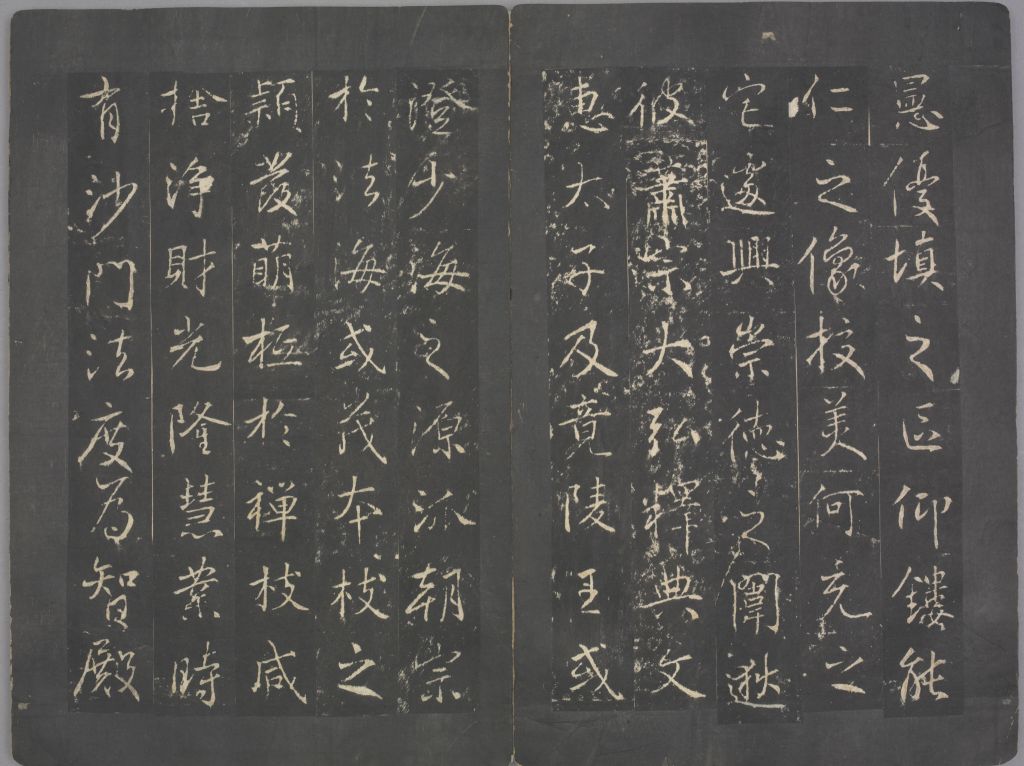 曇優填之區仰鏤能
仁之像校美何充之
宅遂興崇德之闈逖
彼蕭宗大弘釋典文
惠太子及竟陵王或
澄少海之源派朝宗
於法海或茂本枝之
穎發萌柢於禪枝咸
捨淨財光隆慧業時
有沙門法度為智殿